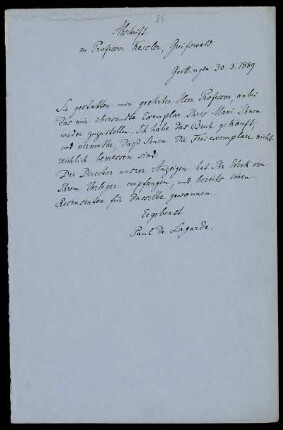 88
Abschrift
an Professor Kessler, Greifswald.
Goettingen 30. 3. 1889
Sie gestatten mir, geehrter Herr Professor, anbei
das mir übersandte Exemplar Ihres Mani Ihnen
wieder zuzustellen. Ich habe das Buch gekauft,
und vermuthe, dass Ihnen die Freiexemplare nicht
reichlich bemessen sind.
Der Director unserer Anzeigen hat Ihr Werk von
Ihrem Verleger empfangen, und bereits einen
Recensenten für dasselbe gewonnen.
Ergebenst
Paul de Lagarde.